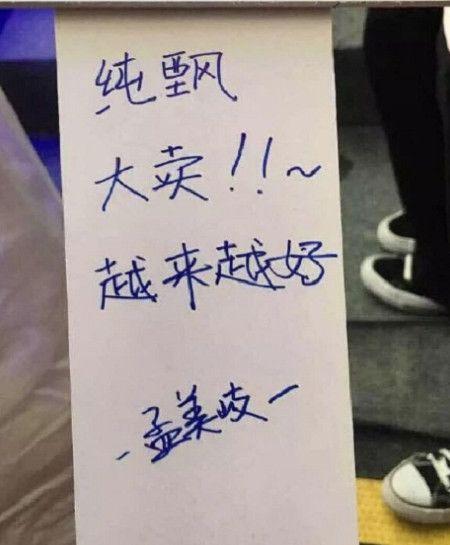 纯甄
大卖!!~
越来越好
-孟美岐一